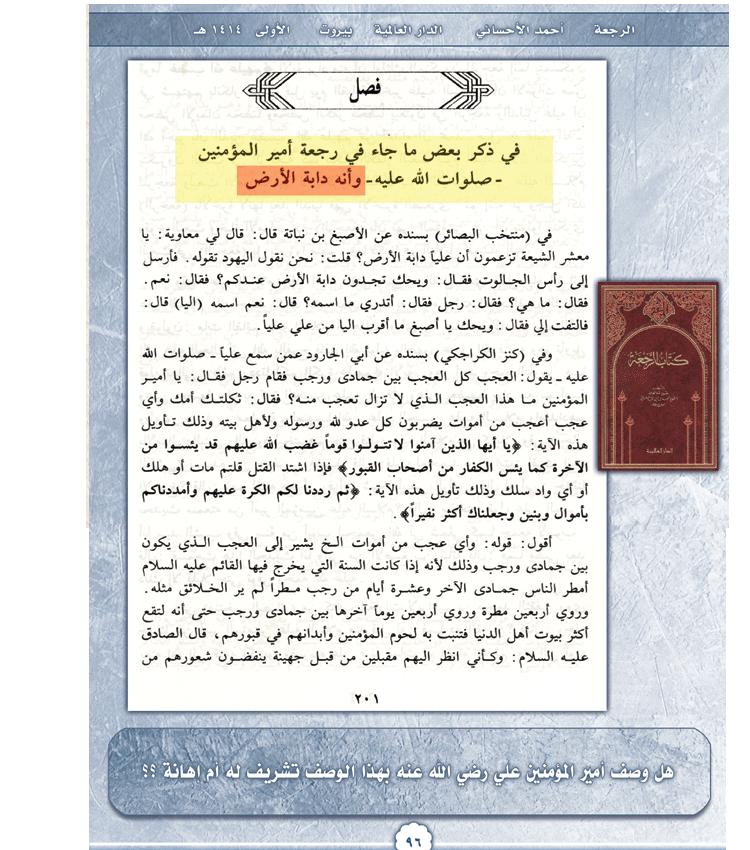 الرجعة أحمد الأحسائي الدار العالمية بيروت الأولى ١٤١٤ هـ
فصل
في ذكر بعض ما جاء في رجعة أمير المؤمنين
- صلوات الله عليه - وأنه دابة الأرض
في (منتخب البصائر) بسنده عن الأصبغ بن نباتة قال: قال لي معاوية: يا
معشر الشيعة تزعمون أن علياً دابة الأرض؟ قلت: نحن نقول اليهود تقوله. فأرسل
إلى رأس الجالوت فقال: ويحك تجدون دابة الأرض عندكم؟ فقال: نعم.
فقال: ما هي؟ فقال: رجل فقال: أتدري ما اسمه؟ قال: نعم اسمه (اليا) قال:
فالتفت إلي فقال: ويحك يا أصبغ ما أقرب اليا من علي علياً.
وفي (كنز الكراجكي) بسنده عن أبي الجارود عمن سمع علياً - صلوات الله
عليه - يقول: العجب كل العجب بين جمادى ورجب فقام رجل فقال: يا أمير
المؤمنين ما هذا العجب الذي لا تزال تعجب منه؟ فقال: ثكلتك أمك وأي
عجب أعجب من أموات يضربون كل عدو لله ورسوله ولأهل بيته وذلك تأويل
هذه الآية: ﴿يا أيها الذين آمنوا لا تتولوا قوماً غضب الله عليهم قد يئسوا من
الآخرة كما يئس الكفار من أصحاب القبور﴾ فإذا اشتد القتل قلتم مات أو هلك
أو أي واد سلك وذلك تأويل هذه الآية: ﴿ثم رددنا لكم الكرة عليهم وأمددناكم
بأموال وبنين وجعلناك أكثر نفيراً﴾.
أقول: قوله: وأي عجب من أموات الخ يشير إلى العجب الذي يكون
بين جمادى ورجب وذلك لأنه إذا كانت السنة التي يخرج فيها القائم عليه السلام
أمطر الناس جمادى الآخر وعشرة أيام من رجب مطراً لم ير الخلائق مثله.
وروي أربعين مطرة وروي أربعين يوماً آخرها بين جمادى ورجب حتى أنه لتقع
أكثر بيوت أهل الدنيا فتنبت به لحوم المؤمنين وأبدانهم في قبورهم، قال الصادق
عليه السلام: وكأني انظر اليهم مقبلين من قبل جهينة ينفضون شعورهم من
٢٠١
كتاب الرجعة
الدار العالمية
هل وصف أمير المؤمنين علي رضي الله عنه بهذا الوصف تشريف له أم إهانة ؟؟
٩٦